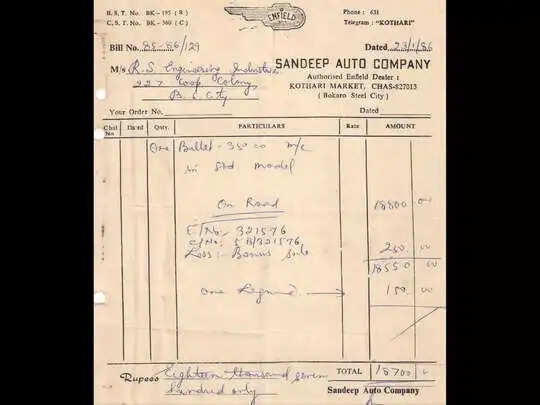 B. S. T. No. BK - 195 ( R )
C. S. T. No. BK - 360 ( C )
ENFIELD
Phone : 631
Telegram : "KOTHARI"
Bill No. 85-86/129
Dated 23/1/86
M/s R.S. Engineering Industries
227 Coop Colony
B. S. City
SANDEEP AUTO COMPANY
Authorised Enfield Dealer :
KOTHARI MARKET, CHAS-827013
( Bokaro Steel City )
Your Order No.
Dated
Chal No
Dated
Qnty.
PARTICULARS
Rate
AMOUNT
One Bullet - 350 cc m/c
in Std model
On Road 18800 00
E/No:- 321576
C/No: 5B/321576
Less :- Bonus 250 00
18550 00
One 150 00
Rupees Eighteen thousand seven
hundred only
TOTAL 18700
Sandeep Auto Company